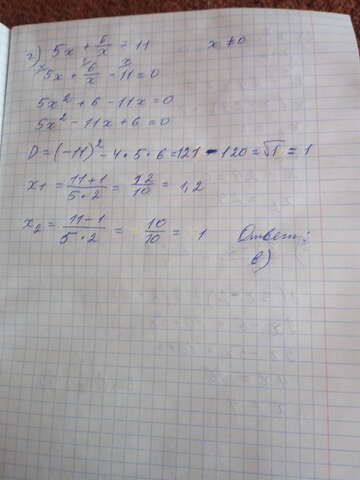 г) 5x + 6/x = 11 x ≠ 0
5x + 6/x - 11 = 0
5x² + 6 - 11x = 0
5x² - 11x + 6 = 0
D = (-11)² - 4 · 5 · 6 = 121 - 120 = √1 = 1
x₁ = 11+1/5·2 = 12/10 = 1,2
x₂ = 11-1/5·2 = 10/10 = 1 Ответ:
в)